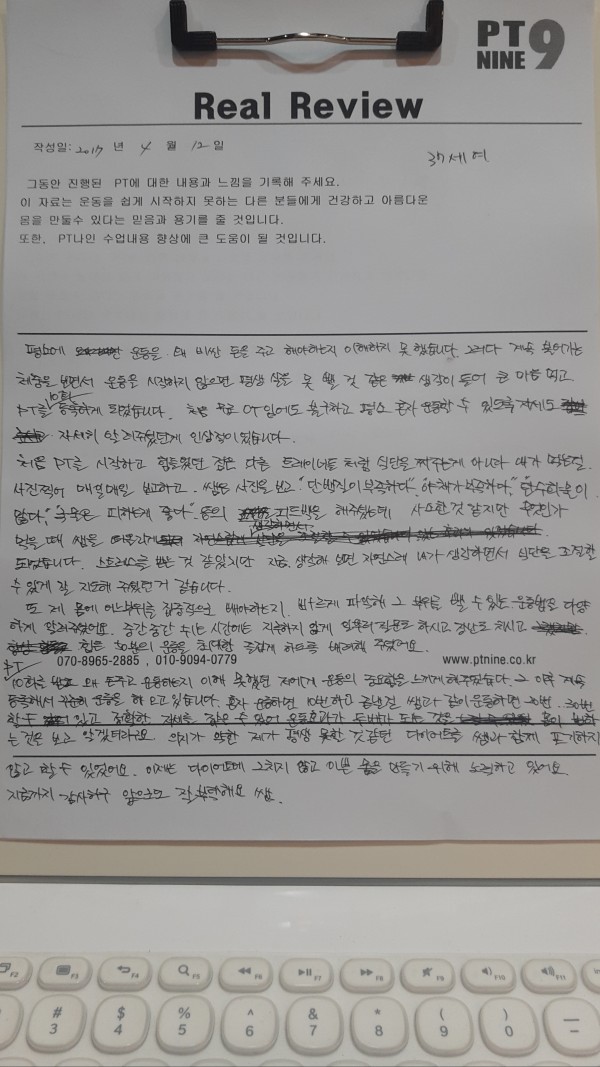 PT NINE 9
Real Review
작성일: 2017 년 4 월 12 일
37세 여
그동안 진행된 PT에 대한 내용과 느낌을 기록해 주세요.
이 자료는 운동을 쉽게 시작하지 못하는 다른 분들에게 건강하고 아름다운
몸을 만들수 있다는 믿음과 용기를 줄 것입니다.
또한, PT나인 수업내용 향상에 큰 도움이 될 것입니다.
평소에 운동을 왜 비싼 돈을 주고 해야하는지 이해하지 못 했습니다. 그러다 계속 늘어가는
체중을 보면서 운동을 시작하지 않으면 평생 살을 못 뺄 것 같은 생각이 들어 큰 마음 먹고
PT를 10회 등록하게 되었습니다. 처음 무료 OT 임에도 불구하고 평소 혼자 운동할 수 있도록 자세도
자세히 알려주었던게 인상적이었습니다.
처음 PT를 시작하고 힘들었던 점은 다른 트레이너들 처럼 식단을 짜주는게 아니라 내가 먹는걸
사진찍어 매일매일 보고하고. 쌤은 사진을 보고 "단백질이 부족하다", "야채가 부족하다", "탄수화물이
많다", "국물은 피하는게 좋다" 등의 피드백을 해주었는데 사소한것 같지만 무언가
먹을 때 쌤을 떠올리게 생각하면서
되었습니다. 스트레스를 받는 것 같았지만 지금 생각해 보면 자연스레 내가 생각하면서 식단을 조절할
수 있게 잘 지도해 주었던거 같습니다.
또 제 몸에 어느부위를 집중적으로 빼야하는지. 빠르게 파악해 그 부위를 뺄 수 있는 운동법을 다양
하게 알려주었어요. 중간중간 쉬는 시간에는 지루하지 않게 일부러 질문도 하시고 장난도 치시고
힘든 50분의 운동을 최대한 즐겁게 하도록 배려해 주었어요.
070-8965-2885 , 010-9094-0779 www.ptnine.co.kr
PT 10회를 받고 왜 돈주고 운동하는지 이해 못했던 저에게 운동의 중요함을 느끼게 해주었습니다. 그 이후 계속
등록해서 꾸준히 운동을 해 오고 있습니다. 혼자 운동하면 10번하고 끝낼걸 쌤과 같이 운동하면 20번. 30번
할수 있고 정확한 자세를 잡을 수 있어 운동효과가 두배가 되는 것은 몸이 변하
는것은 보고 알겠더라고요. 의지가 약한 제가 평생 못할 것 같던 다이어트를 쌤과 함께 포기하지
않고 할 수 있었어요. 이제는 다이어트에 그치지 않고 이쁜 몸을 만들기 위해 노력하고 있어요.
지금까지 감사하구 앞으로도 잘 부탁해요 쌤.
F2
F3
F4
F5
F6
F7
F8
F9
F10
F11
# 3
$ 4
% 5
^ 6
& 7
* 8
( 9
) 0